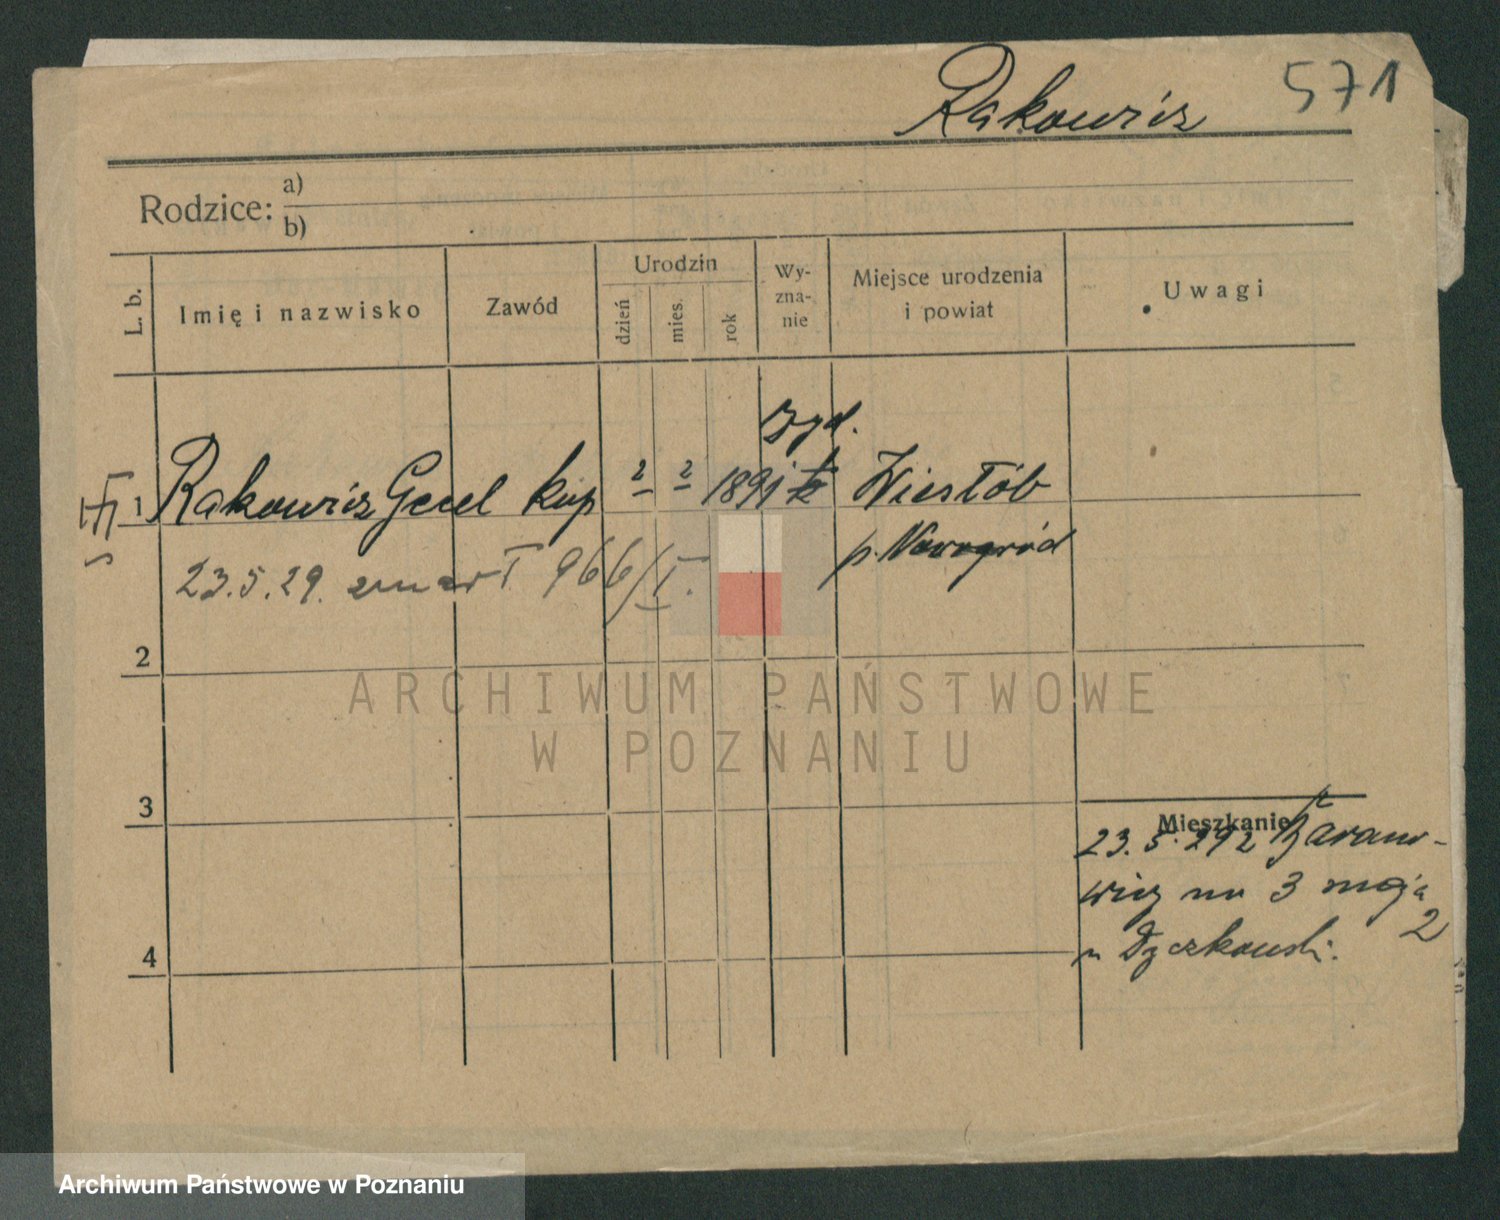 Rakowicz 571
Rodzice: a)
b)
L. b. Imię i nazwisko Zawód Urodzin dzień mies. rok Wy-zna-nie Miejsce urodzenia i powiat Uwagi
żyd.
1 Rakowicz Gecel kup 2 2 1891
p. Nowogród
23.5.29. zmarł 966/I.
2
ARCHIWUM PAŃSTWOWE
W POZNANIU
3
Mieszkanie
23.5.29 z Baranowicz
na 3 maja
2
u Dyczkowski.
4
Archiwum Państwowe w Poznaniu